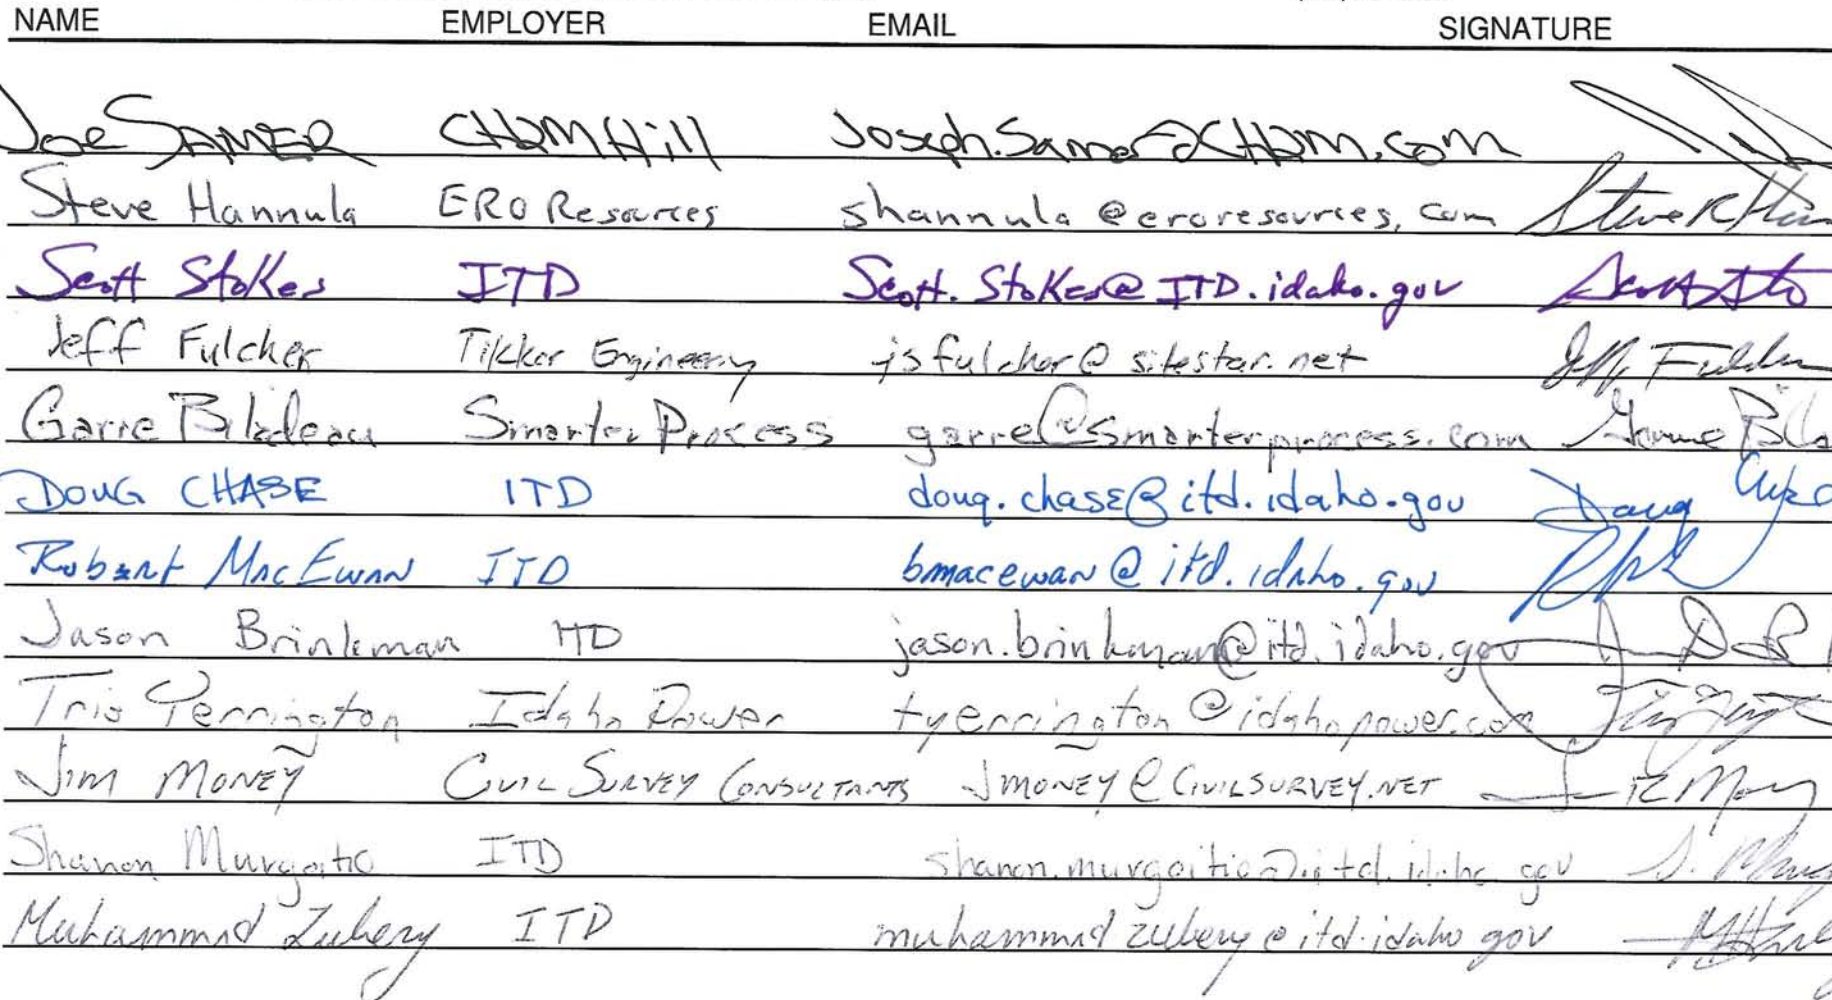 NAME EMPLOYER EMAIL SIGNATURE
Joe SAMER CH2MHill Joseph.Samer@CH2M.com
Steve Hannula ERO Resources shannula@eroresources.com Steve
Scott Stokes ITD Scott.Stokes@ITD.idaho.gov Scott Sto
Jeff Fulcher Tikker Engineering jsfulcher@sitestar.net Jeff
Garre Biladeau Smarter Process garre@smarterprocess.com
DOUG CHASE ITD doug.chase@itd.idaho.gov Doug
Robert MacEwan ITD bmacewan@itd.idaho.gov
Jason Brinkman ITD jason.brinkman@itd.idaho.gov
Tris Yerrington Idaho Power tyerrington@idahopower.com
Jim MONEY CIVIL SURVEY CONSULTANTS JMONEY@CIVILSURVEY.NET
Shanon Murgoitio ITD shanon.murgoitio@itd.idaho.gov
Muhammad Zubery ITD muhammad zubery@itd.idaho gov